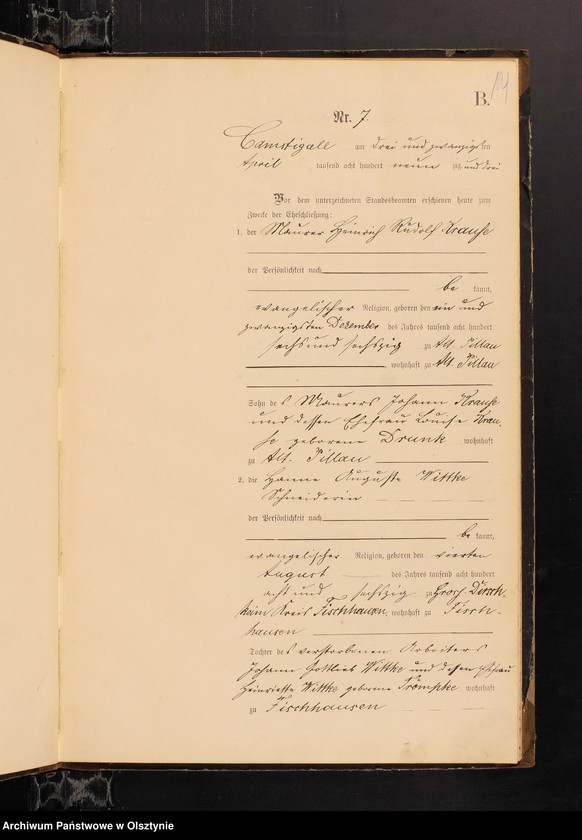 B.
14
Nr. 7.
Camstigall am drei und zwanzigsten
April tausend acht hundert neun zig und drei
Vor dem unterzeichneten Standesbeamten erschienen heute zum
Zwecke der Eheschließung:
1. der Maurer Heinrich Rudolf Krause
der Persönlichkeit nach
be kannt,
evangelischer Religion, geboren den ein und
zwanzigsten Dezember des Jahres tausend acht hundert
sechs und sechszig zu Alt. Pillau
wohnhaft zu Alt. Pillau
Sohn des Maurers Johann Krause
und dessen Ehefrau Louise Krau-
se geborene Drunk wohnhaft
zu Alt. Pillau
2. die Hanne Auguste Wittke
Schneiderin
der Persönlichkeit nach
be kannt,
evangelischer Religion, geboren den vierten
August des Jahres tausend acht hundert
acht und sechszig zu Gross Dirsch-
keim Kreis Fischhausen, wohnhaft zu Fisch-
hausen
Tochter des verstorbenen Arbeiters
Johann Gottlieb Wittke und dessen Ehefrau
Heinriette Wittke geborene Trompke wohnhaft
zu Fischhausen
Archiwum Państwowe w Olsztynie